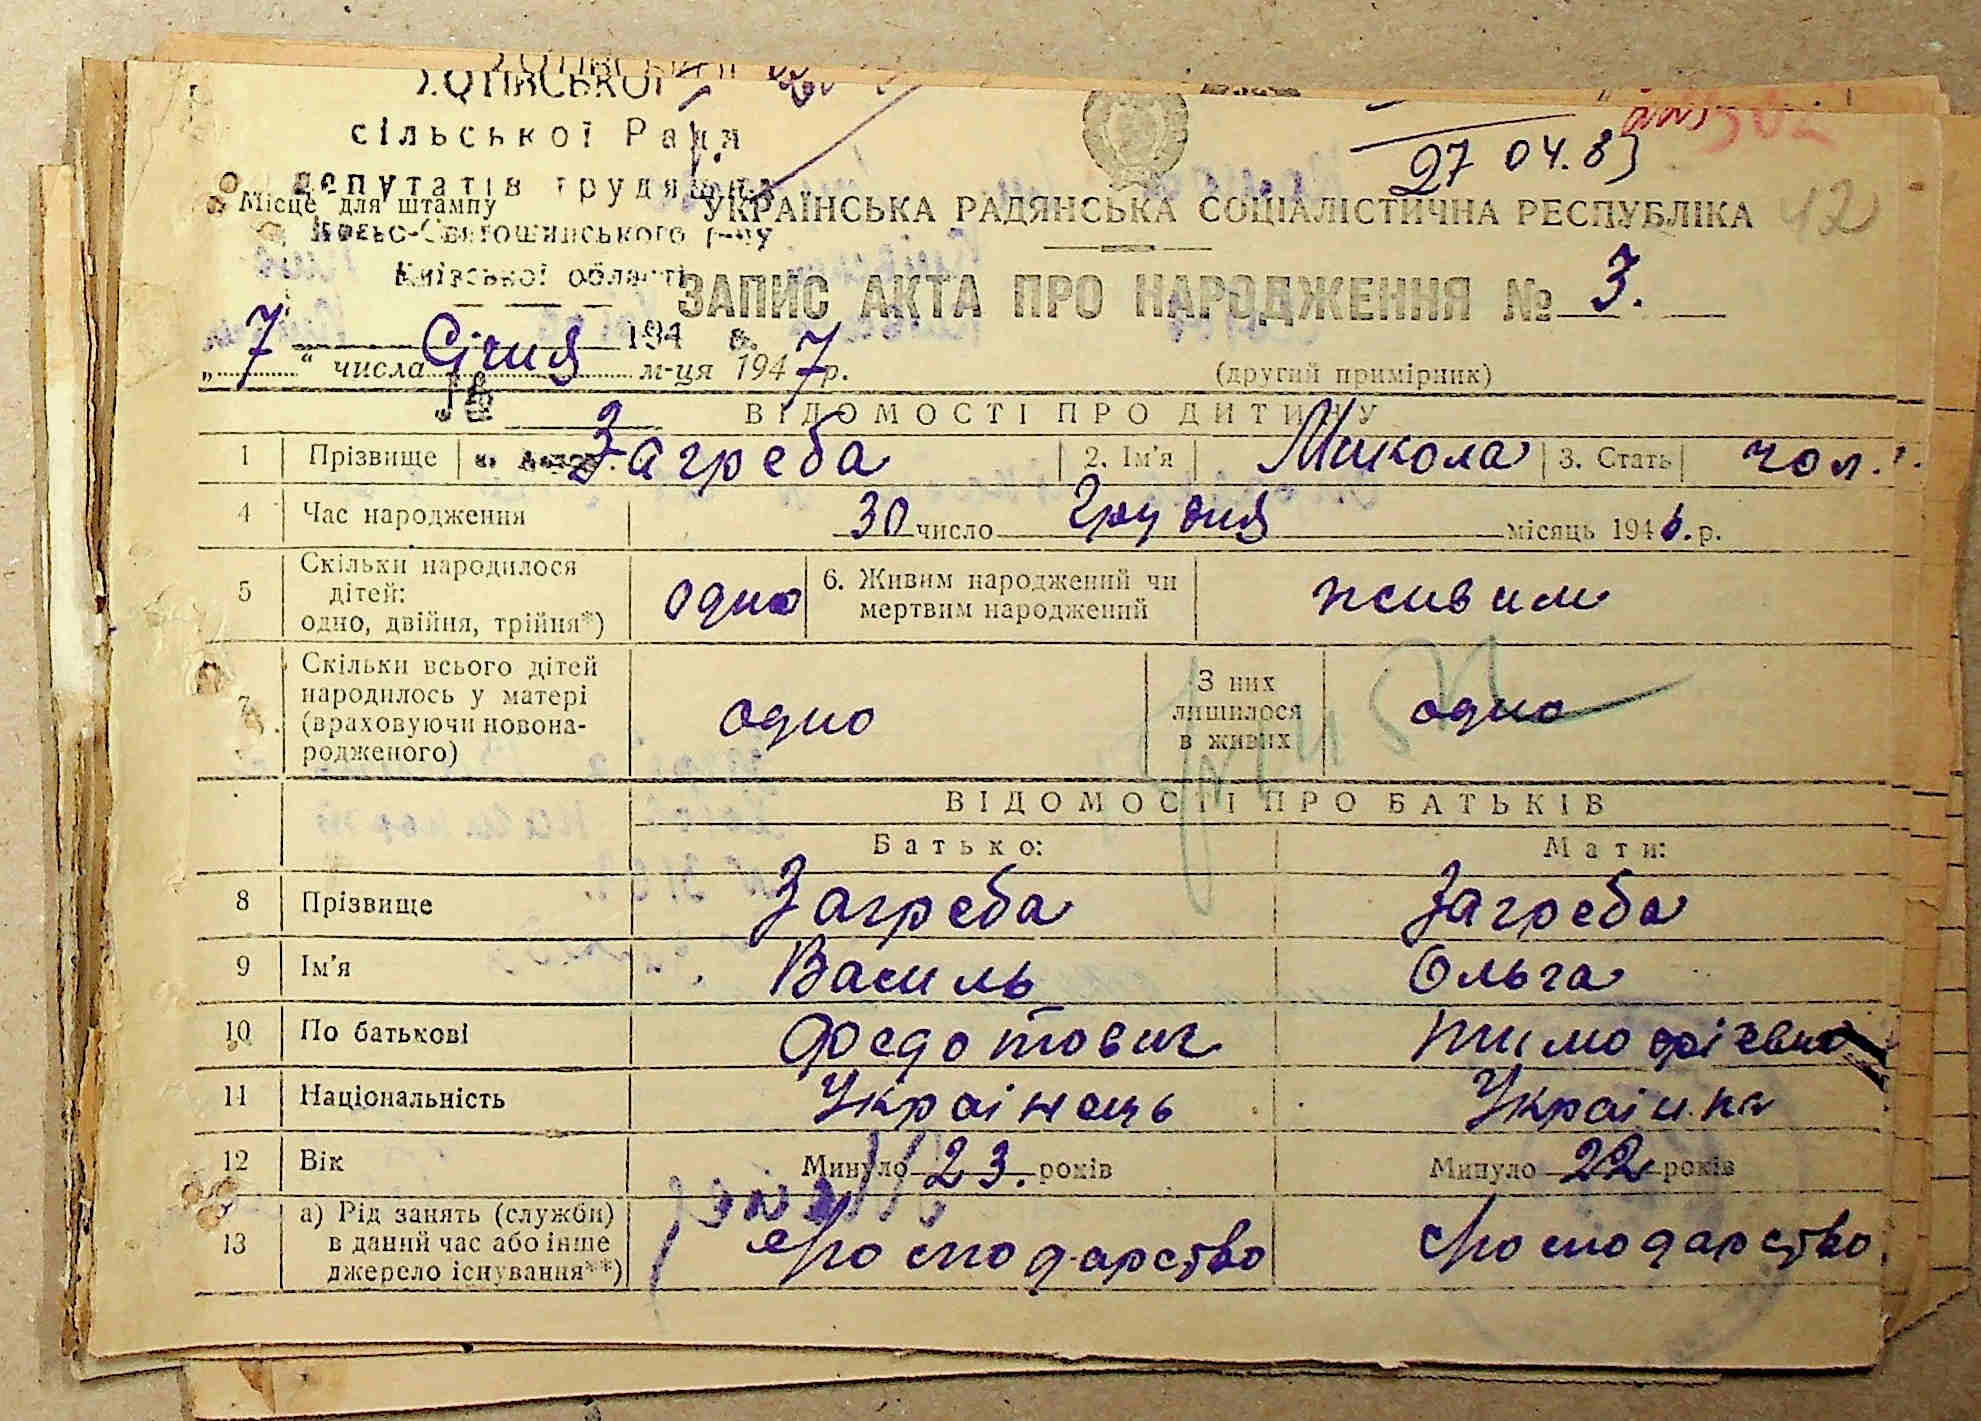 сільської Ради
депутатів трудящих
Місце для штампу
Києво-Святошинського р-ну
Київської області
27 04.83
12
УКРАЇНСЬКА РАДЯНСЬКА СОЦІАЛІСТИЧНА РЕСПУБЛІКА
ЗАПИС АКТА ПРО НАРОДЖЕННЯ № 3.
194 р.
„ 7 “ числа Січня м-ця 1947 р.
(другий примірник)
ВІДОМОСТІ ПРО ДИТИНУ
1 Прізвище Загреба 2. Ім'я Микола 3. Стать чол.
4 Час народження 30 число Грудня місяць 1946. р.
5 Скільки народилося дітей: одно, двійня, трійня*) одно 6. Живим народжений чи мертвим народжений живим
7 Скільки всього дітей народилось у матері (враховуючи новонародженого) одно З них лишилося в живих одно
ВІДОМОСТІ ПРО БАТЬКІВ
Батько: Мати:
8 Прізвище Загреба Загреба
9 Ім'я Василь Ольга
10 По батькові Федотович Тимофієвна
11 Національність Українець Українка
12 Вік Минуло 23. років Минуло 22 років
13 а) Рід занять (служби) в даний час або інше джерело існування**) Господарство Господарство